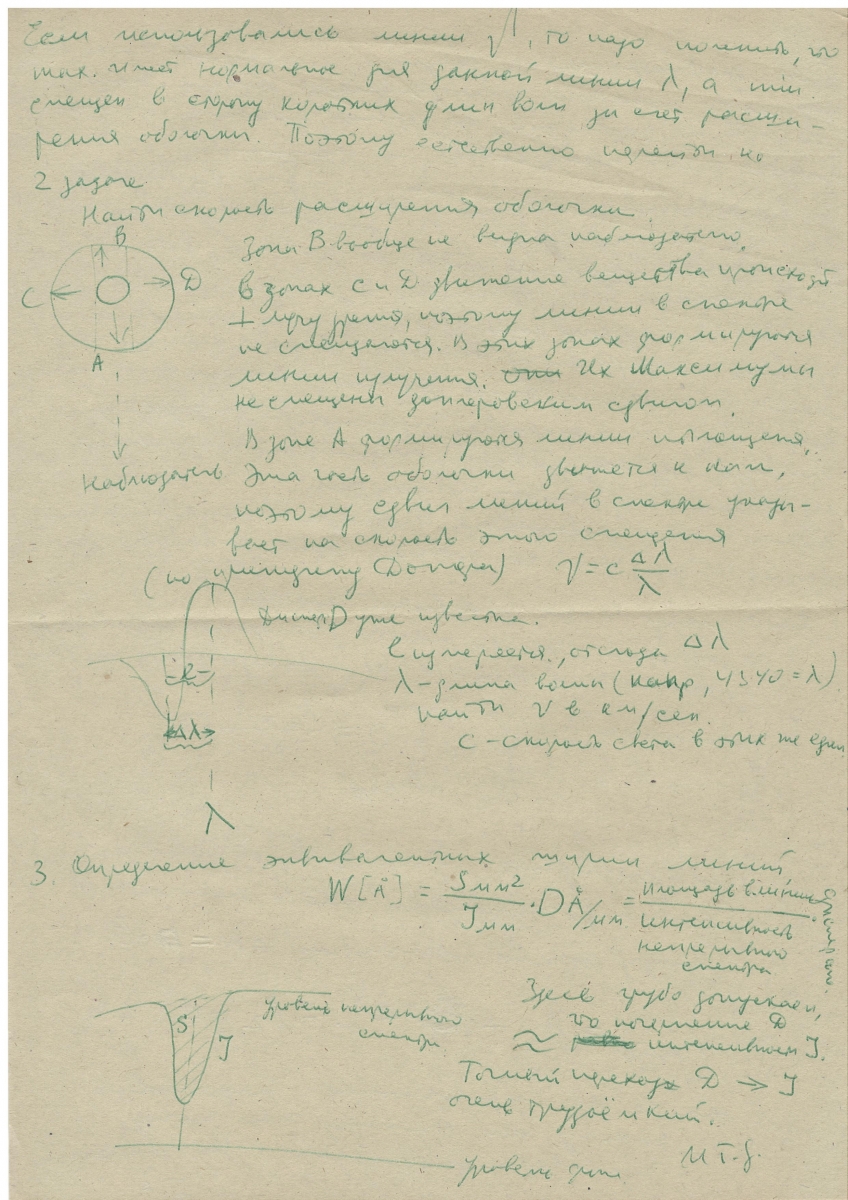 Если использовались линии , то надо помнить, что
max. имеет нормальное для данной линии λ, а min
смещен в сторону коротких длин волн за счет расши-
рения оболочки. Поэтому естественно перейти ко
2 задаче
Найти скорость расширения оболочки.
B
C
D
A
Наблюдатель
Зона B вообще не видна наблюдателю.
В зонах C и D движение вещества происходит
⊥ лучу зрения, поэтому линии в спектре
не смещаются. В этих зонах формируются
линии излучения. Их максимумы
не смещены допплеровским сдвигом.
В зоне A формируются линии поглощения.
Эта часть оболочки движется к нам,
поэтому сдвиг линий в спектре указы-
вает на скорость этого смещения
(по принципу Допплера) V = c Δλ/λ
D уже известна.
l измеряется, отсюда Δλ
λ - длина волны (напр, 4340 = λ)
найти V в км/сек.
c - скорость света в этих же един.
l
Δλ
λ
3. Определение эквивалентных ширин линий
W[Å] = S мм²/J мм · D Å/мм = площадь в линии/интенсивность непрерывного спектра
S
J
уровень непрерывного
спектра
Здесь грубо допускаем,
что почернение D
≈ интенсивности J.
Точный переход D → J
очень трудоёмкий.
уровень фона